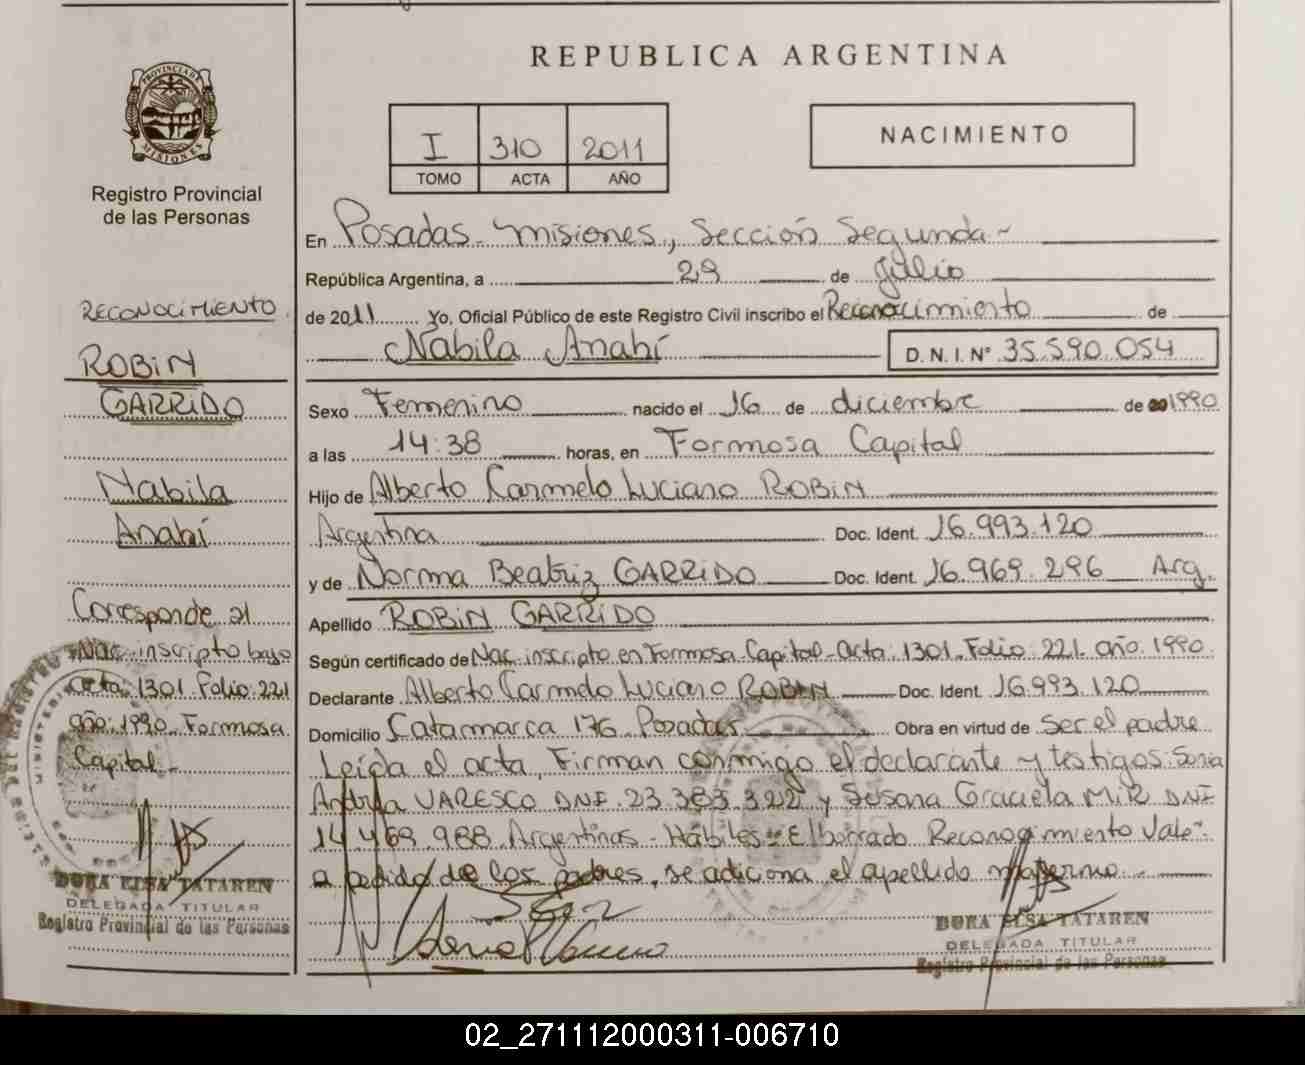 REPUBLICA ARGENTINA
PROVINCIA DE
MISIONES
Registro Provincial
de las Personas
I 310 2011
TOMO ACTA AÑO
NACIMIENTO
En Posadas - Misiones, Sección Segunda -
República Argentina, a 29 de Julio
de 2011 Yo, Oficial Público de este Registro Civil inscribo el Reconocimiento de
Nabila Anahí D.N.I. Nº 35.590.054
Sexo Femenino nacido el 16 de diciembre de 1990
a las 14:38 horas, en Formosa Capital
Hijo de Alberto Carmelo Luciano ROBIN
Argentina Doc. Ident. 16.993.120
y de Norma Beatriz GARRIDO Doc. Ident. 16.969.296 Arg.
Apellido ROBIN GARRIDO
Según certificado de Nac. inscripto en Formosa Capital - Acta: 1301. Folio: 221. año. 1990
Declarante Alberto Carmelo Luciano ROBIN Doc. Ident. 16.993.120
Domicilio Catamarca 176 Posadas Obra en virtud de Ser el padre
Leída el acta, Firman conmigo el declarante y testigos: Sonia
Andrea VARESCO DNI. 23.383.322 y Susana Graciela MIR DNI
14.469.988. Argentinas - Hábiles - El borrado Reconocimiento Vale -
a pedido de los padres, se adiciona el apellido materno -
DORA ELSA TATAREN
DELEGADA TITULAR
Registro Provincial de las Personas
RECONOCIMIENTO
ROBIN
GARRIDO
Nabila
Anahí
Corresponde al
Nac. inscripto bajo
Acta: 1301 Folio: 221
año: 1990. Formosa
Capital -
DORA ELSA TATAREN
DELEGADA TITULAR
Registro Provincial de las Personas
02_271112000311-006710